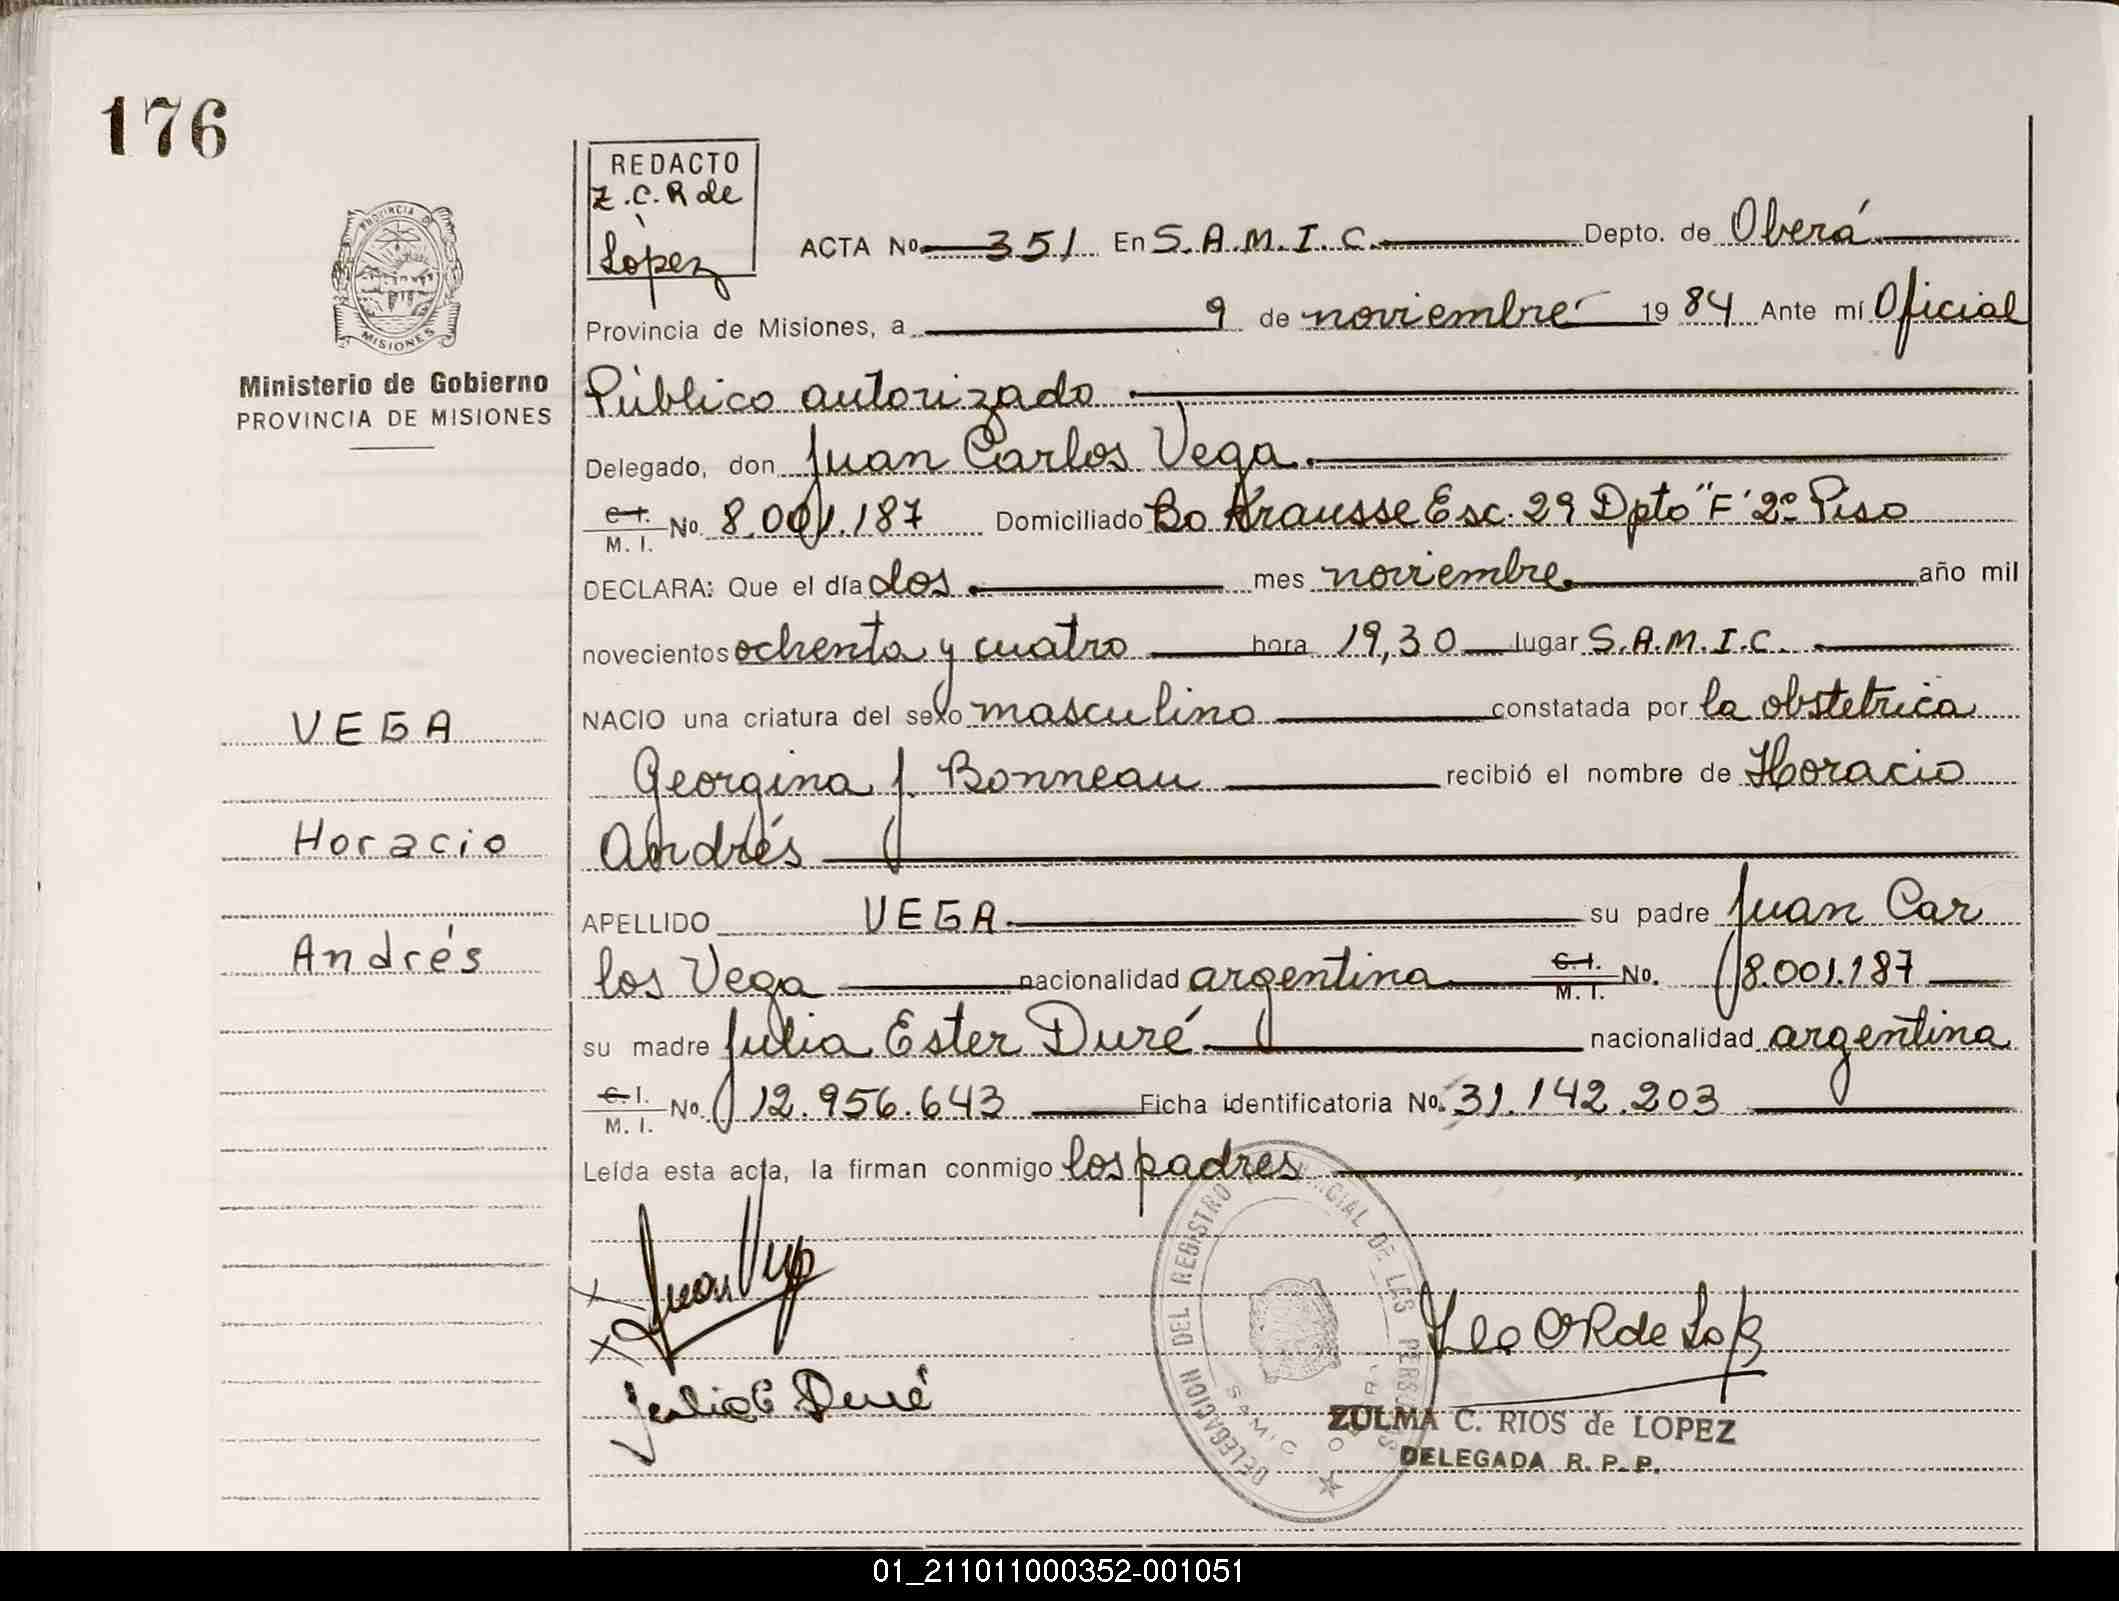 176
REDACTO
Z.C.R de
López
ACTA No 351 En S.A.M.I.C. Depto. de Oberá
Provincia de Misiones, a 9 de noviembre 1984 Ante mí Oficial
Ministerio de Gobierno
PROVINCIA DE MISIONES
Público autorizado
Delegado, don Juan Carlos Vega.
C.I. M.I. No. 8.001.187 Domiciliado Bo Krausse Esc. 29 Dpto "F" 2º Piso
DECLARA: Que el día dos mes noviembre año mil
novecientos ochenta y cuatro hora 19,30 lugar S.A.M.I.C.
VEGA
NACIO una criatura del sexo masculino constatada por la obstetrica
Georgina J. Bonneau recibió el nombre de Horacio
Horacio
Andrés
APELLIDO VEGA su padre Juan Car
Andrés
los Vega nacionalidad argentina C.I. M.I. No. 8.001.187
su madre Julia Ester Duré nacionalidad argentina
C.I. M.I. No. 12.956.643 Ficha identificatoria No. 31.142.203
Leída esta acta, la firman conmigo los padres
Juan Vega
Julia E Duré
DELEGACION DEL REGISTRO DE LAS
PROVINCIA DE
MISIONES
SAMIC
ZULMA C. RIOS de LOPEZ
DELEGADA R. P. P.
01_211011000352-001051